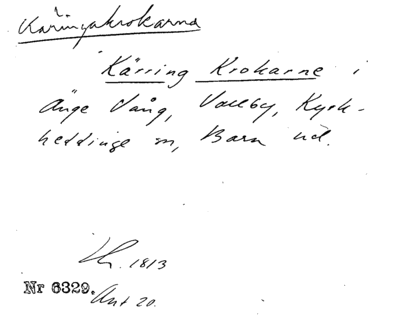 Käringakrokarna
Kärring Krokarne i
Änge Vång, Vallby, Kyrk-
heddinge sn, Bara hd.
1813
Nr 6329. Ant 20.